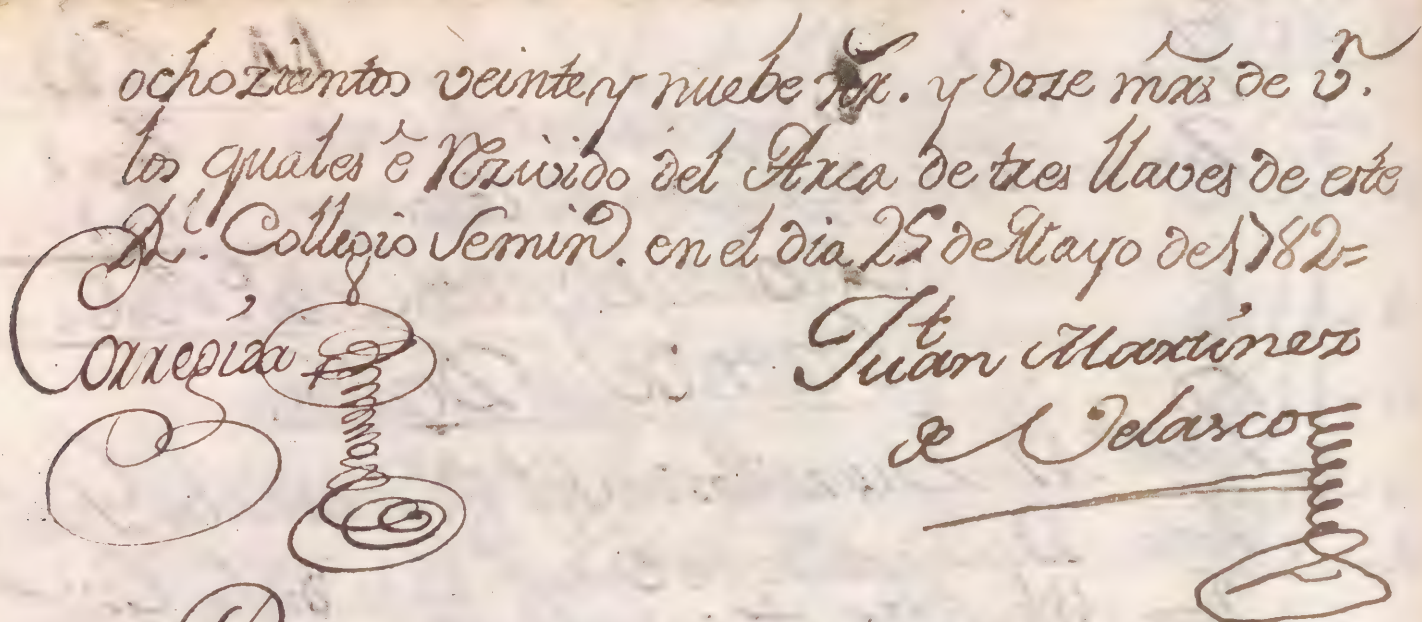 ochozientos veinte y nuebe rx. y doze mrs de v.n
los quales è Rezivido del Arca de tres llaves de este
Rl. Collegio Semin.o en el dia 25 de Mayo de 1782=
Corregida
Juan Martinez
de Velasco